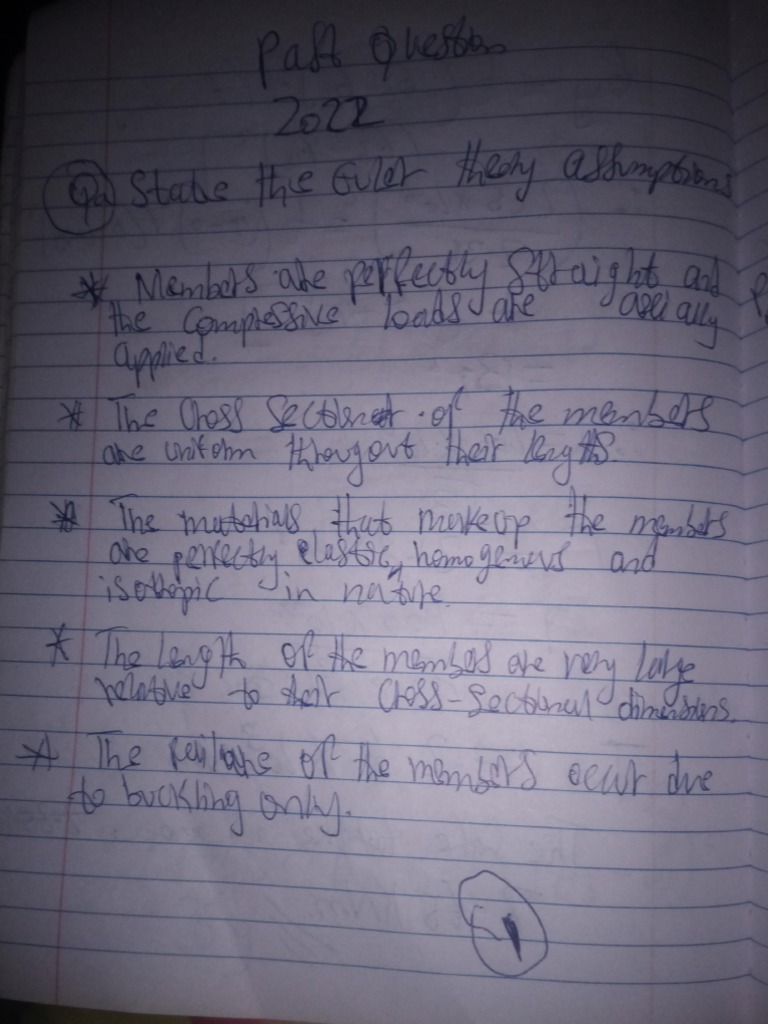 Past Question
2022
Qa State the Euler theory assumptions
* Members are perfectly straight and
the compressive loads are axially
applied.
* The Cross Section of the members
are uniform througout their lengths.
* The materials that makeup the members
are perfectly elastic, homogenous and
isotropic in nature.
* The length of the members are very large
relative to their Cross-Sectional dimensions.
* The failure of the members occur due
to buckling only.